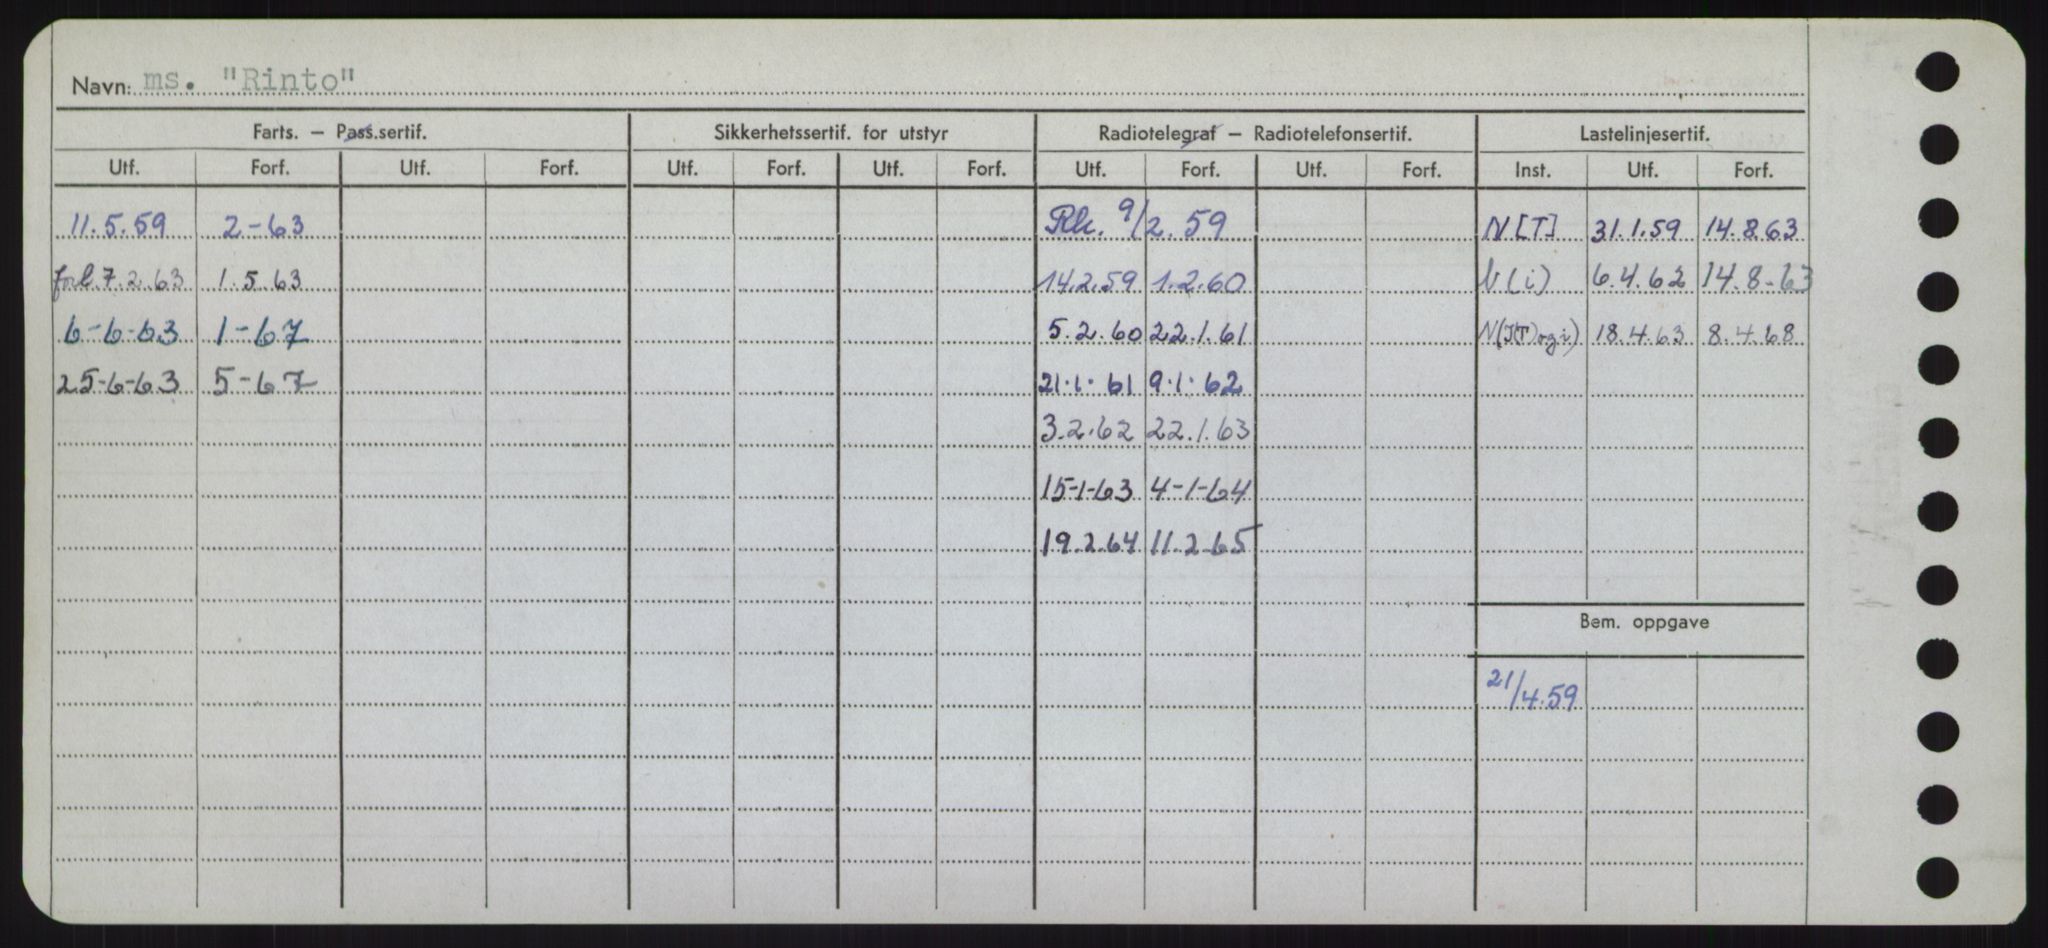 Navn: ms. "Rinto"
Farts. – Pass.sertif. Sikkerhetssertif. for utstyr Radiotelegraf – Radiotelefonsertif. Lastelinjesertif.
Utf. Forf. Utf. Forf. Utf. Forf. Utf. Forf. Utf. Forf. Utf. Forf. Inst. Utf. Forf.
11.5.59 2-63 9/2.59 N[T] 31.1.59 14.8.63
forl. 7.2.63 1.5 63 14.2.59 1.2.60 N(i) 6.4.62 14.8-63
6-6-63 1-67 5.2.60 22.1.61 18.4.63 8.4.68
25-6-63 5-67 21.1.61 9.1.62
3.2.62 22.1.63
15-1-63 4-1-64
19.2.64 11.2.65
Bem. oppgave
21/4.59